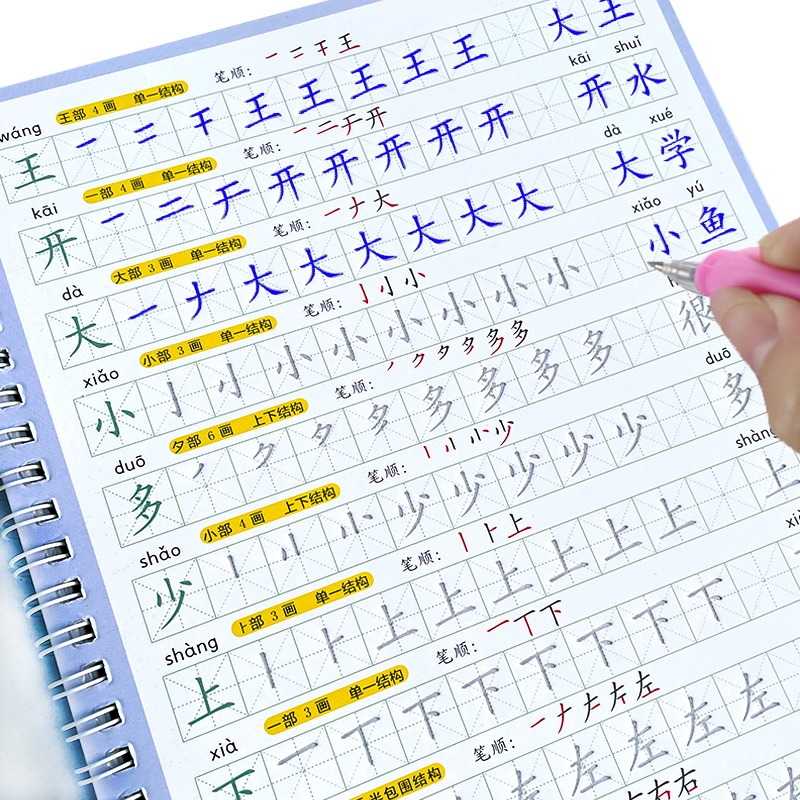 王部 4 画 单一结构 笔顺: 一 二 干 王
wáng
王 一 二 干 王 王 王 王 王 大 王
一部 4 画 单一结构 笔顺: 一 二 开 kāi shuǐ
kāi
开 一 二 开 开 开 开 开 开 水
大部 3 画 单一结构 笔顺: 一 ナ 大 dà xué
dà
大 一 ナ 大 大 大 大 大 大 大 学
小部 3 画 单一结构 笔顺: 亅 小 xiǎo yú
xiǎo
小 亅 小 小 小 小 小 小 小 鱼
夕部 6 画 上下结构 笔顺: ノ ク 夕 多 多
duō
多 ノ ク 夕 多 多 多 多 多 很
小部 4 画 上下结构 笔顺: 小 少 duō
shǎo
少 小 少 少 少 少 多
卜部 3 画 单一结构 笔顺: 丨 卜 上 shàng
shàng
上 丨 卜 上 上 上 上 上 上 上
一部 3 画 单一结构 笔顺: 一 丁 下
xià
下 一 丁 下 下 下 下 下 下
半包围结构 笔顺: 一 ナ 左
左 左 左 左 左
右 右